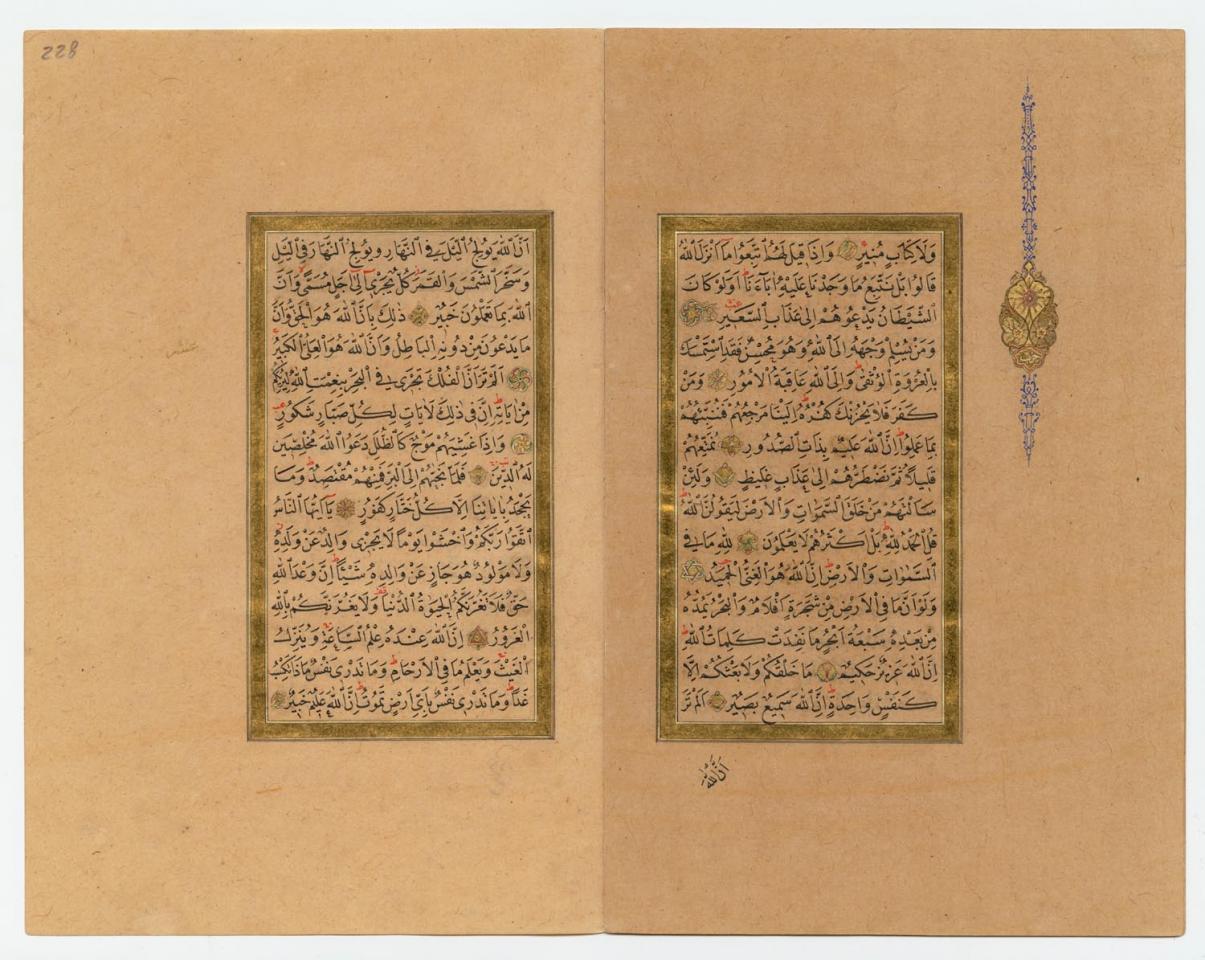 وَلَا كِتَابٍ مُنِيرٍ وَاِذَا قِيلَ لَهُمُ اتَّبِعُوا مَا اَنْزَلَ اللّٰهُ
قَالُوا بَلْ نَتَّبِعُ مَا وَجَدْنَا عَلَيْهِ اٰبَاءَنَا اَوَلَوْ كَانَ
الشَّيْطَانُ يَدْعُوهُمْ اِلٰى عَذَابِ السَّعِيرِ
وَمَنْ يُسْلِمْ وَجْهَهُ اِلَى اللّٰهِ وَهُوَ مُحْسِنٌ فَقَدِ اسْتَمْسَكَ
بِالْعُرْوَةِ الْوُثْقٰى وَاِلَى اللّٰهِ عَاقِبَةُ الْاُمُورِ وَمَنْ
كَفَرَ فَلَا يَحْزُنْكَ كُفْرُهُ اِلَيْنَا مَرْجِعُهُمْ فَنُنَبِّئُهُمْ
بِمَا عَمِلُوا اِنَّ اللّٰهَ عَلِيمٌ بِذَاتِ الصُّدُورِ نُمَتِّعُهُمْ
قَلِيلًا ثُمَّ نَضْطَرُّهُمْ اِلٰى عَذَابٍ غَلِيظٍ وَلَئِنْ
سَاَلْتَهُمْ مَنْ خَلَقَ السَّمٰوَاتِ وَالْاَرْضَ لَيَقُولُنَّ اللّٰهُ
قُلِ الْحَمْدُ لِلّٰهِ بَلْ اَكْثَرُهُمْ لَا يَعْلَمُونَ لِلّٰهِ مَا فِى
السَّمٰوَاتِ وَالْاَرْضِ اِنَّ اللّٰهَ هُوَ الْغَنِىُّ الْحَمِيدُ
وَلَوْ اَنَّ مَا فِى الْاَرْضِ مِنْ شَجَرَةٍ اَقْلَامٌ وَالْبَحْرُ يَمُدُّهُ
مِنْ بَعْدِهِ سَبْعَةُ اَبْحُرٍ مَا نَفِدَتْ كَلِمَاتُ اللّٰهِ
اِنَّ اللّٰهَ عَزِيزٌ حَكِيمٌ مَا خَلْقُكُمْ وَلَا بَعْثُكُمْ اِلَّا
كَنَفْسٍ وَاحِدَةٍ اِنَّ اللّٰهَ سَمِيعٌ بَصِيرٌ اَلَمْ تَرَ
اَنَّ اللّٰهَ
228
اَنَّ اللّٰهَ يُولِجُ الَّيْلَ فِى النَّهَارِ وَيُولِجُ النَّهَارَ فِى الَّيْلِ
وَسَخَّرَ الشَّمْسَ وَالْقَمَرَ كُلٌّ يَجْرِى اِلٰى اَجَلٍ مُسَمًّى وَاَنَّ
اللّٰهَ بِمَا تَعْمَلُونَ خَبِيرٌ ذٰلِكَ بِاَنَّ اللّٰهَ هُوَ الْحَقُّ وَاَنَّ
مَا يَدْعُونَ مِنْ دُونِهِ الْبَاطِلُ وَاَنَّ اللّٰهَ هُوَ الْعَلِىُّ الْكَبِيرُ
اَلَمْ تَرَ اَنَّ الْفُلْكَ تَجْرِى فِى الْبَحْرِ بِنِعْمَتِ اللّٰهِ لِيُرِيَكُمْ
مِنْ اٰيَاتِهِ اِنَّ فِى ذٰلِكَ لَاٰيَاتٍ لِكُلِّ صَبَّارٍ شَكُورٍ
وَاِذَا غَشِيَهُمْ مَوْجٌ كَالظُّلَلِ دَعَوُا اللّٰهَ مُخْلِصِينَ
لَهُ الدِّينَ فَلَمَّا نَجّٰيهُمْ اِلَى الْبَرِّ فَمِنْهُمْ مُقْتَصِدٌ وَمَا
يَجْحَدُ بِاٰيَاتِنَا اِلَّا كُلُّ خَتَّارٍ كَفُورٍ يَا اَيُّهَا النَّاسُ
اتَّقُوا رَبَّكُمْ وَاخْشَوْا يَوْمًا لَا يَجْزِى وَالِدٌ عَنْ وَلَدِهِ
وَلَا مَوْلُودٌ هُوَ جَازٍ عَنْ وَالِدِهِ شَيْـًٔا اِنَّ وَعْدَ اللّٰهِ
حَقٌّ فَلَا تَغُرَّنَّكُمُ الْحَيٰوةُ الدُّنْيَا وَلَا يَغُرَّنَّكُمْ بِاللّٰهِ
الْغَرُورُ اِنَّ اللّٰهَ عِنْدَهُ عِلْمُ السَّاعَةِ وَيُنَزِّلُ
الْغَيْثَ وَيَعْلَمُ مَا فِى الْاَرْحَامِ وَمَا تَدْرِى نَفْسٌ مَاذَا تَكْسِبُ
غَدًا وَمَا تَدْرِى نَفْسٌ بِاَىِّ اَرْضٍ تَمُوتُ اِنَّ اللّٰهَ عَلِيمٌ خَبِيرٌ